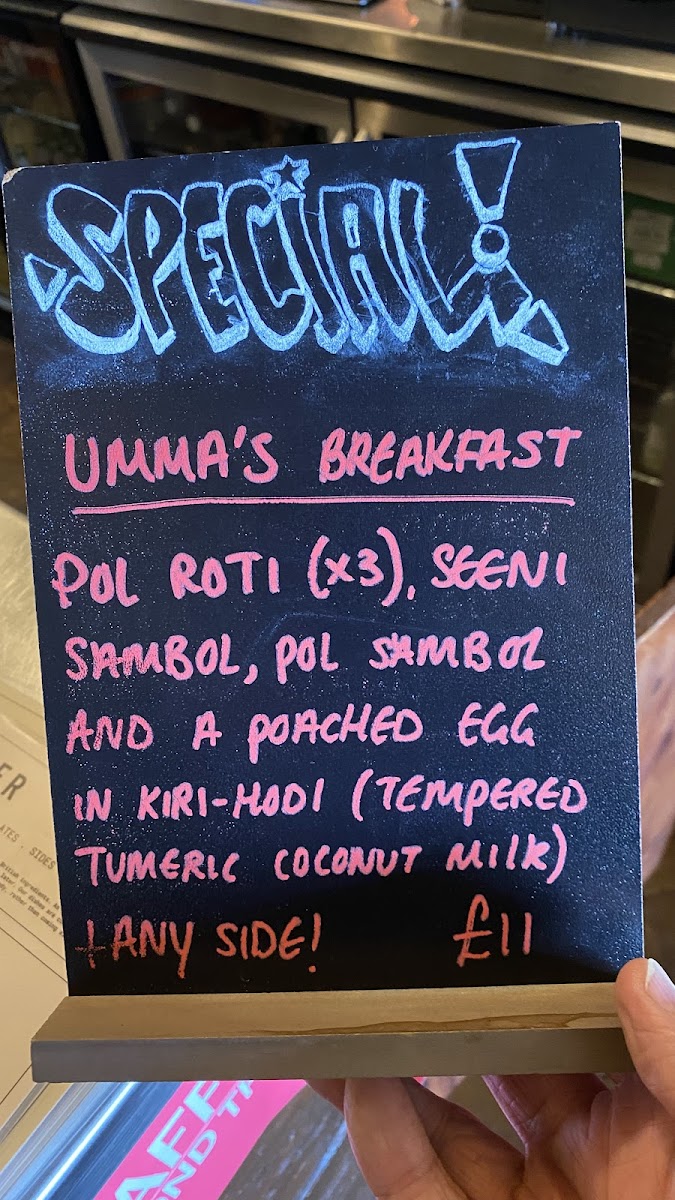 SPECIAL!
UMMA'S BREAKFAST
POL ROTI (x3), SEENI
SAMBOL, POL SAMBOL
AND A POACHED EGG
IN KIRI-HODI (TEMPERED
TUMERIC COCONUT MILK)
+ANY SIDE! £11